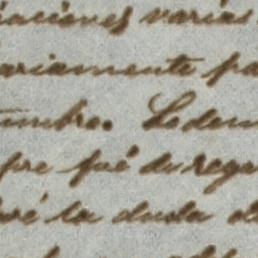 iaciones varias
ariamente pa
tumbre. Se dem
pre fué de rega
ré la duda d